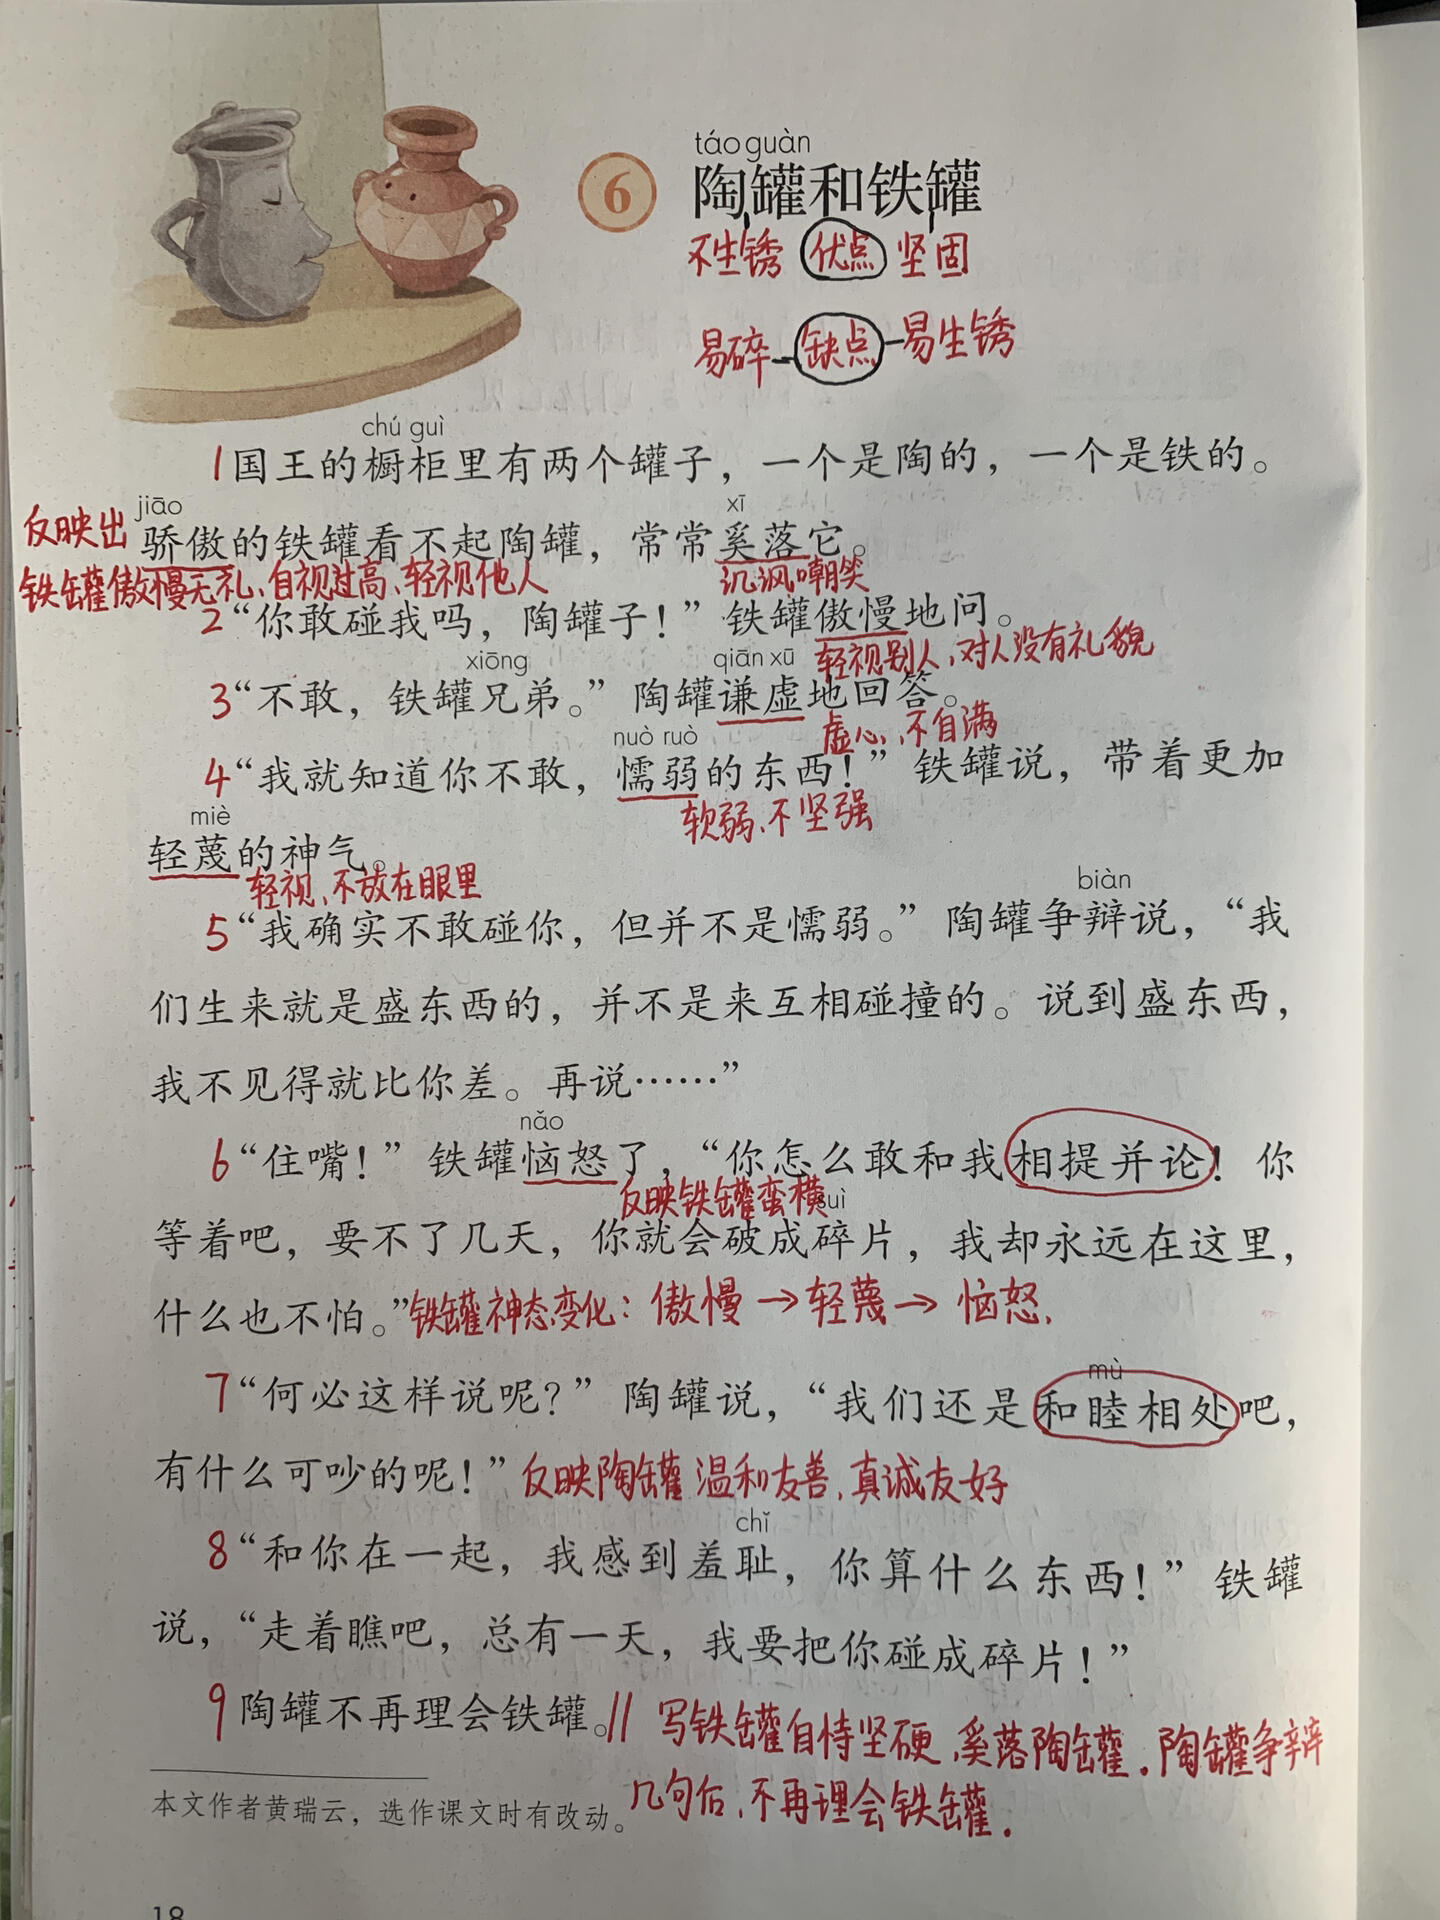 táo guàn
6 陶罐和铁罐
不生锈 优点 坚固
易碎 缺点 易生锈
chú guì
1国王的橱柜里有两个罐子，一个是陶的，一个是铁的。
jiāo xī
反映出 骄傲的铁罐看不起陶罐，常常奚落它。
铁罐傲慢无礼、自视过高、轻视他人 讥讽嘲笑
2“你敢碰我吗，陶罐子！”铁罐傲慢地问。
xiōng qiān xū 轻视别人，对人没有礼貌
3“不敢，铁罐兄弟。”陶罐谦虚地回答。
nuò ruò 虚心，不自满
4“我就知道你不敢，懦弱的东西！”铁罐说，带着更加
miè 软弱、不坚强
轻蔑的神气。
轻视、不放在眼里
biàn
5“我确实不敢碰你，但并不是懦弱。”陶罐争辩说，“我
们生来就是盛东西的，并不是来互相碰撞的。说到盛东西，
我不见得就比你差。再说……”
nǎo
6“住嘴！”铁罐恼怒了，“你怎么敢和我相提并论！你
反映铁罐蛮横 suì
等着吧，要不了几天，你就会破成碎片，我却永远在这里，
什么也不怕。”铁罐神态变化：傲慢→轻蔑→恼怒.
mù
7“何必这样说呢？”陶罐说，“我们还是和睦相处吧，
有什么可吵的呢！”反映陶罐温和友善、真诚友好
chǐ
8“和你在一起，我感到羞耻，你算什么东西！”铁罐
说，“走着瞧吧，总有一天，我要把你碰成碎片！”
9陶罐不再理会铁罐。// 写铁罐自恃坚硬，奚落陶罐。陶罐争辩
几句后，不再理会铁罐.
本文作者黄瑞云，选作课文时有改动。
18